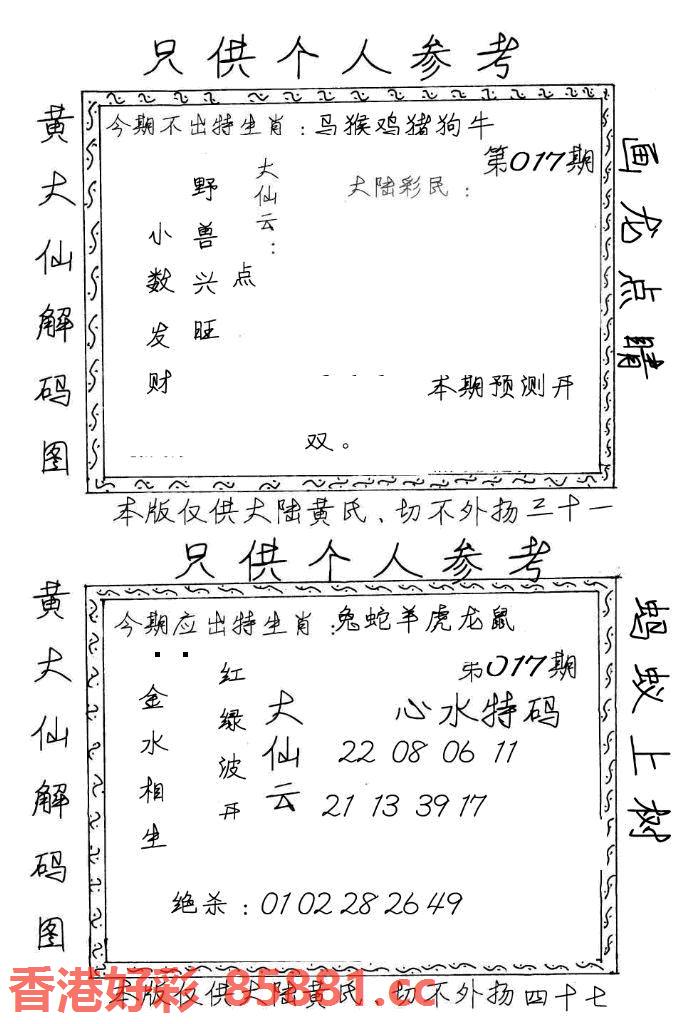 只供个人参考
黄大仙解码图
今期不出特生肖：马猴鸡猪狗牛
第017期
大仙云：
大陆彩民：
野兽兴旺
小数发财
点
本期预测开
双。
画龙点睛
本版仅供大陆黄氏、切不外扬三十一
只供个人参考
黄大仙解码图
今期应出特生肖：兔蛇羊虎龙鼠
第017期
红绿波开
金水相生
大仙云
心水特码
22 08 06 11
21 13 39 17
绝杀：01 02 28 26 49
蚂蚁上树
香港好彩 85881.cc
本版仅供大陆黄氏、切不外扬四十七